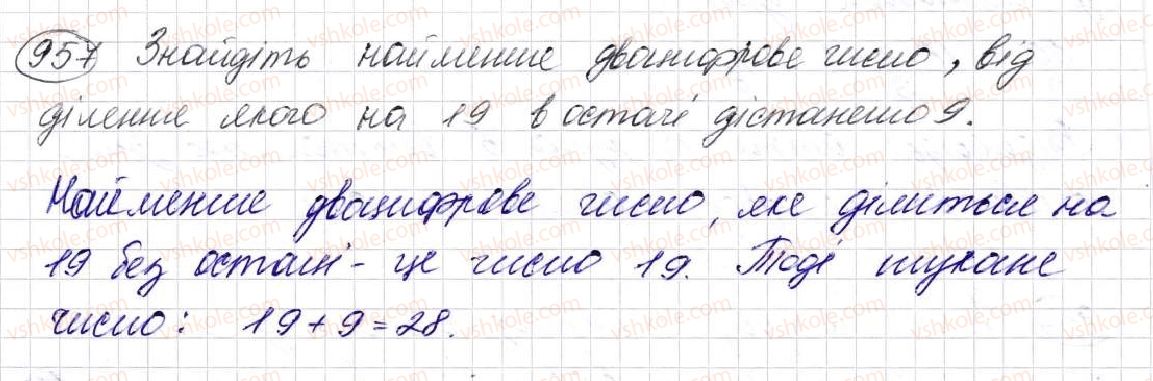 957 Знайдіть найменше двоцифрове число, від
ділення якого на 19 в остачі дістанемо 9.
Найменше двоцифрове число, яке ділиться на
19 без остачі - це число 19. Тоді шукане
число: 19 + 9 = 28.